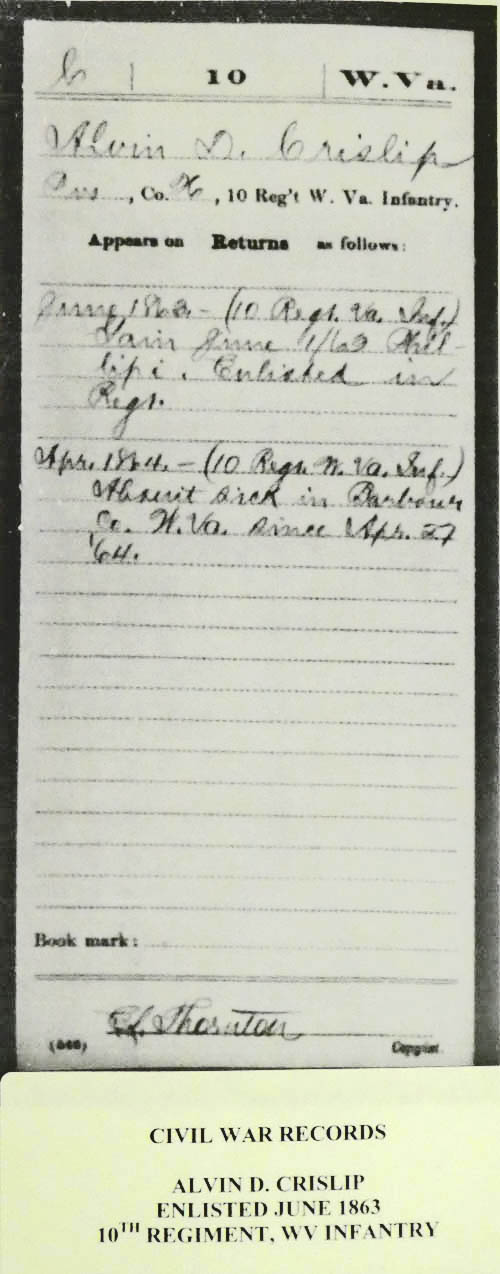 C | 10 | W. Va.
Alvin D. Crislip
Pvt, Co. H, 10 Reg't W. Va. Infantry.
Appears on Returns as follows:
June 1863 - (10 Regt. Va. Inf.)
Gain June 1/63 Phil-
lipi. Enlisted in
Regt.
Apr. 1864. - (10 Regt. W. Va. Inf.)
Absent sick in Barbour
Co. W. Va. since Apr. 27
'64.
Book mark:
Thornton
Copyist.
CIVIL WAR RECORDS
ALVIN D. CRISLIP
ENLISTED JUNE 1863
10TH REGIMENT, WV INFANTRY